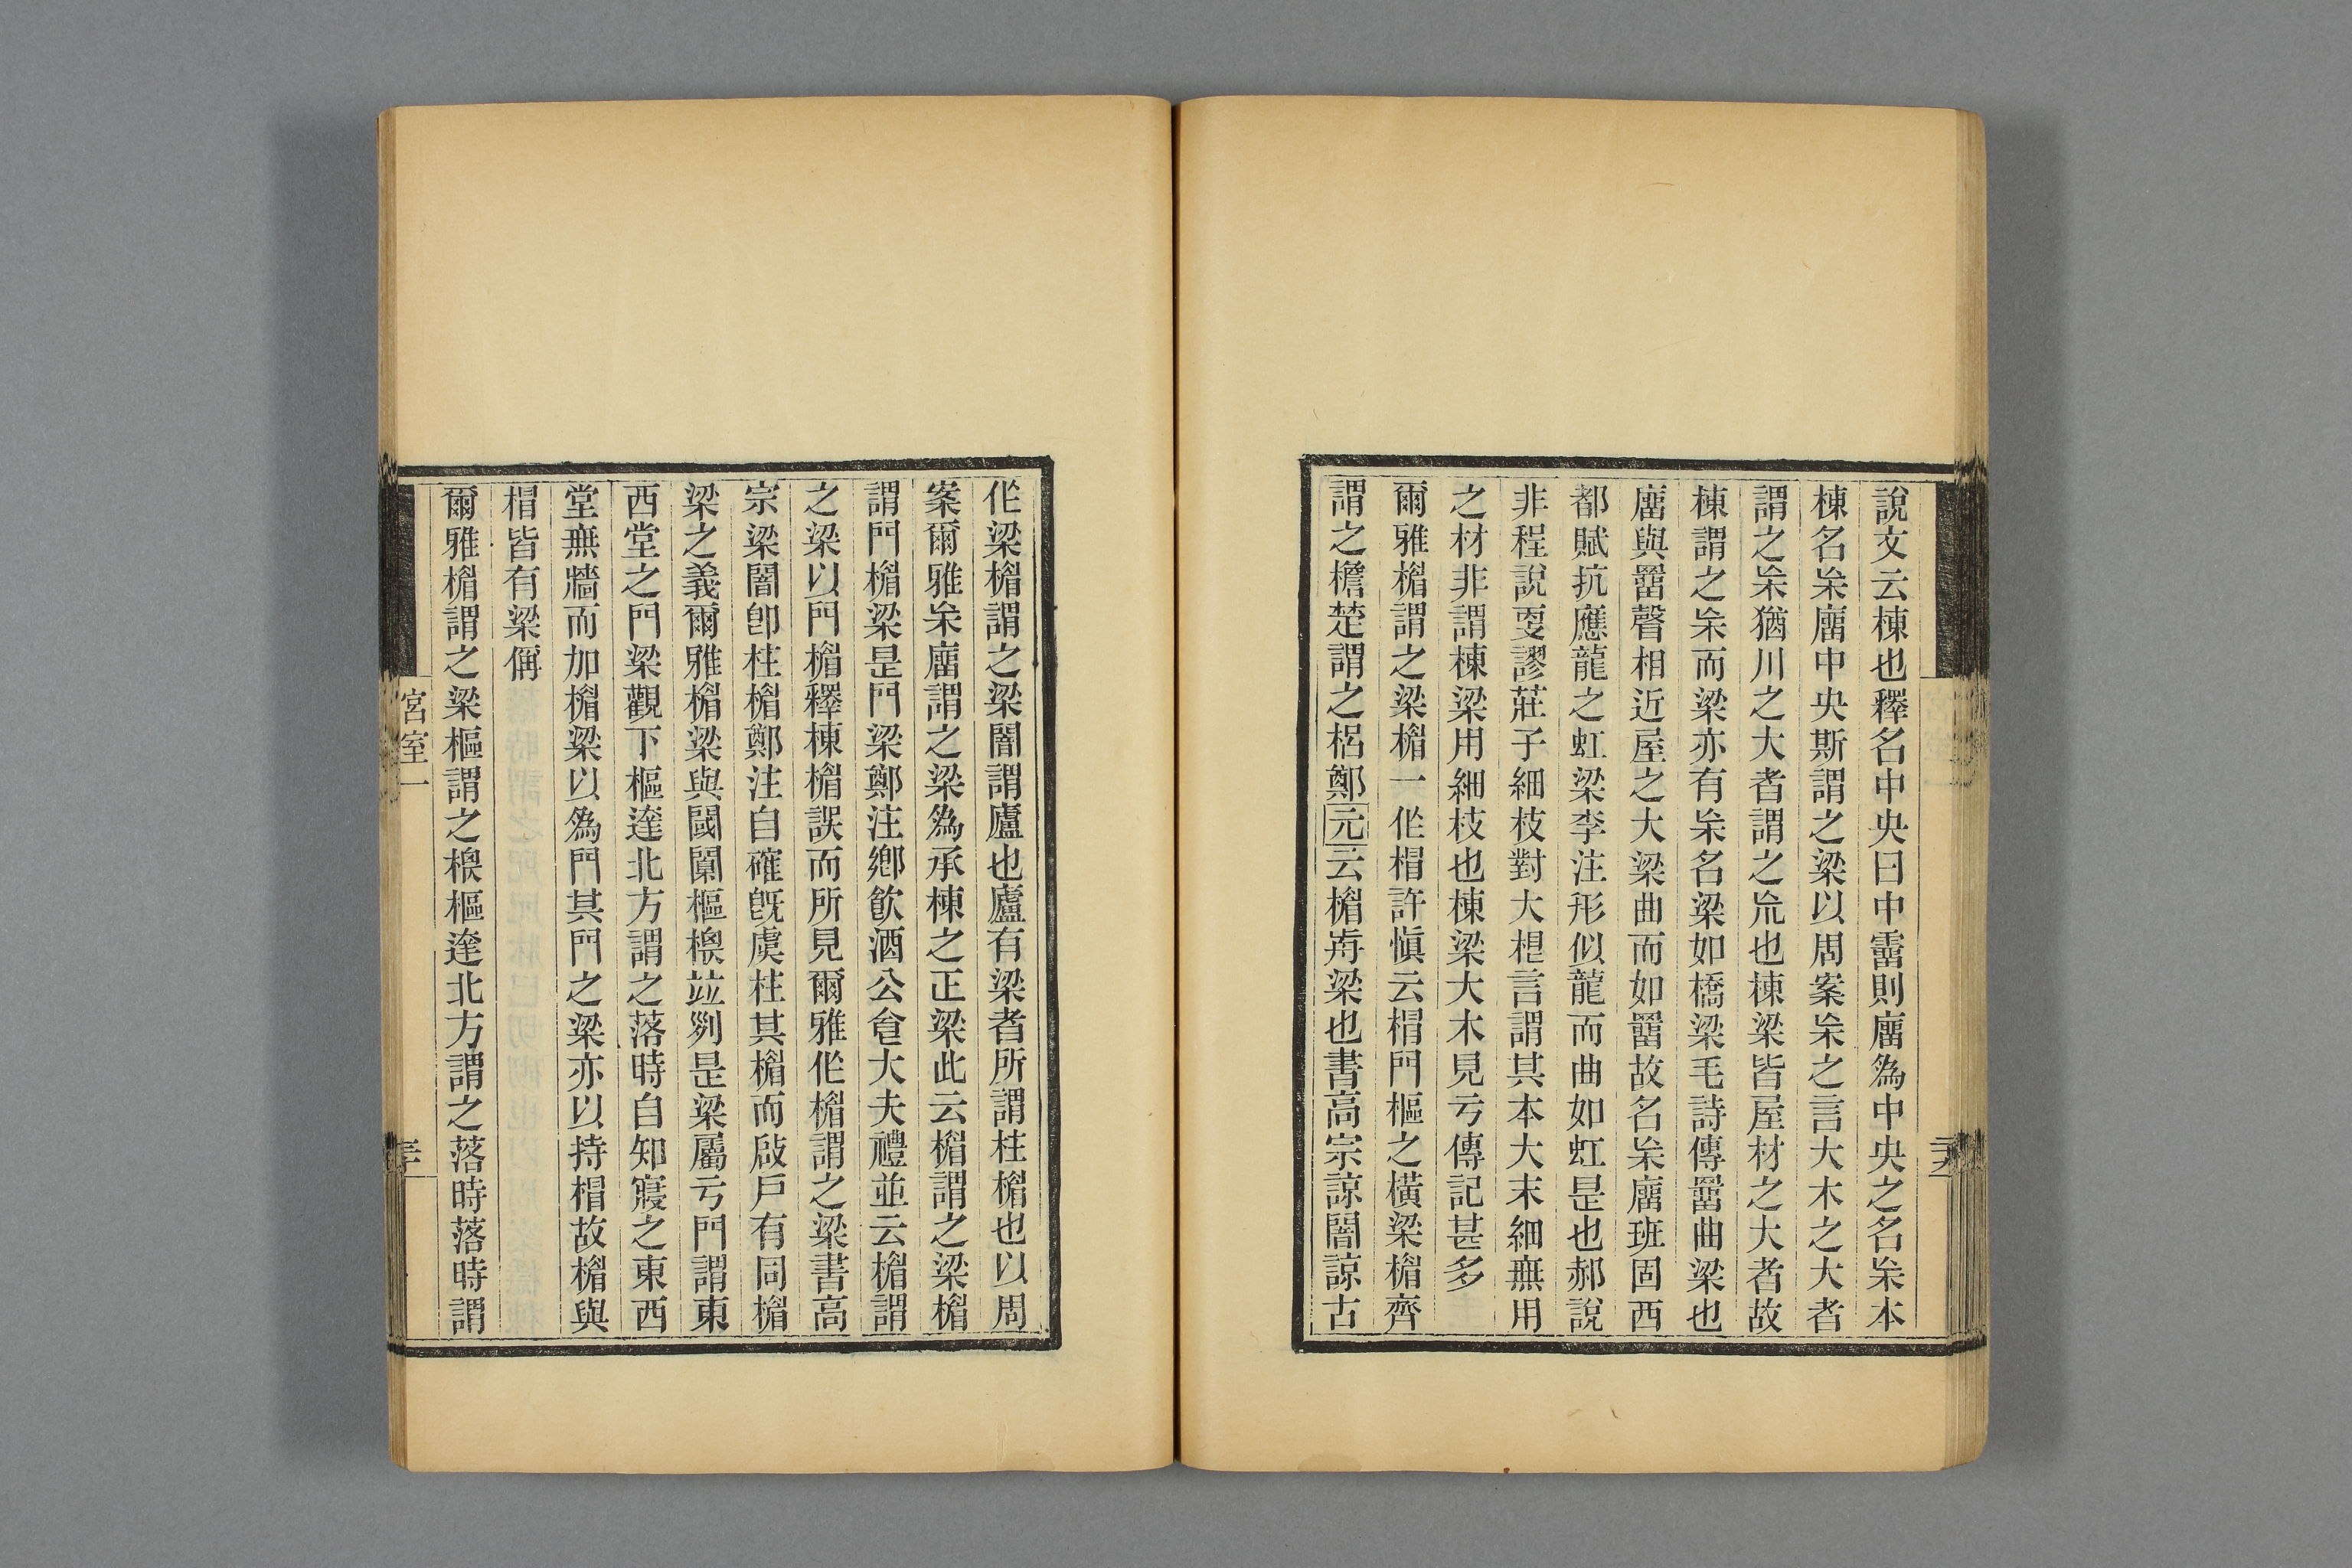 說文云棟也釋名中央曰中霤則廇為中央之名杗本
棟名杗廇中央斯謂之梁以周案杗之言大木之大者
謂之杗猶川之大者謂之巟也棟梁皆屋材之大者故
棟謂之杗而梁亦有杗名梁如橋梁毛詩傳罶曲梁也
廇與罶聲相近屋之大梁曲而如罶故名杗廇班固西
都賦抗應龍之虹梁李注形似龍而曲如虹是也郝說
非程說㪅謬莊子細枝對大根言謂其本大末細無用
之材非謂棟梁用細枝也棟梁大木見亏傳記甚多
爾雅楣謂之梁楣一作梠許慎云梠門樞之橫梁楣齊
謂之檐楚謂之梠鄭元云楣歬梁也書高宗諒闇諒古
作梁楣謂之梁闇謂廬也廬有梁者所謂柱楣也以周
案爾雅杗廇謂之梁為承棟之正梁此云楣謂之梁楣
謂門楣梁是門梁鄭注鄉飲酒公食大夫禮並云楣謂
之梁以門楣釋棟楣誤而所見爾雅作楣謂之梁書高
宗梁闇卽柱楣鄭注自確旣虞柱其楣而啟戶有同楣
梁之義爾雅楣梁與閾闑樞椳竝列是梁屬亏門謂東
西堂之門梁觀下樞達北方謂之落時自知寢之東西
堂無牆而加楣梁以為門其門之梁亦以持梠故楣與
梠皆有梁偁
爾雅楣謂之梁樞謂之椳樞達北方謂之落時落時謂
宮室一